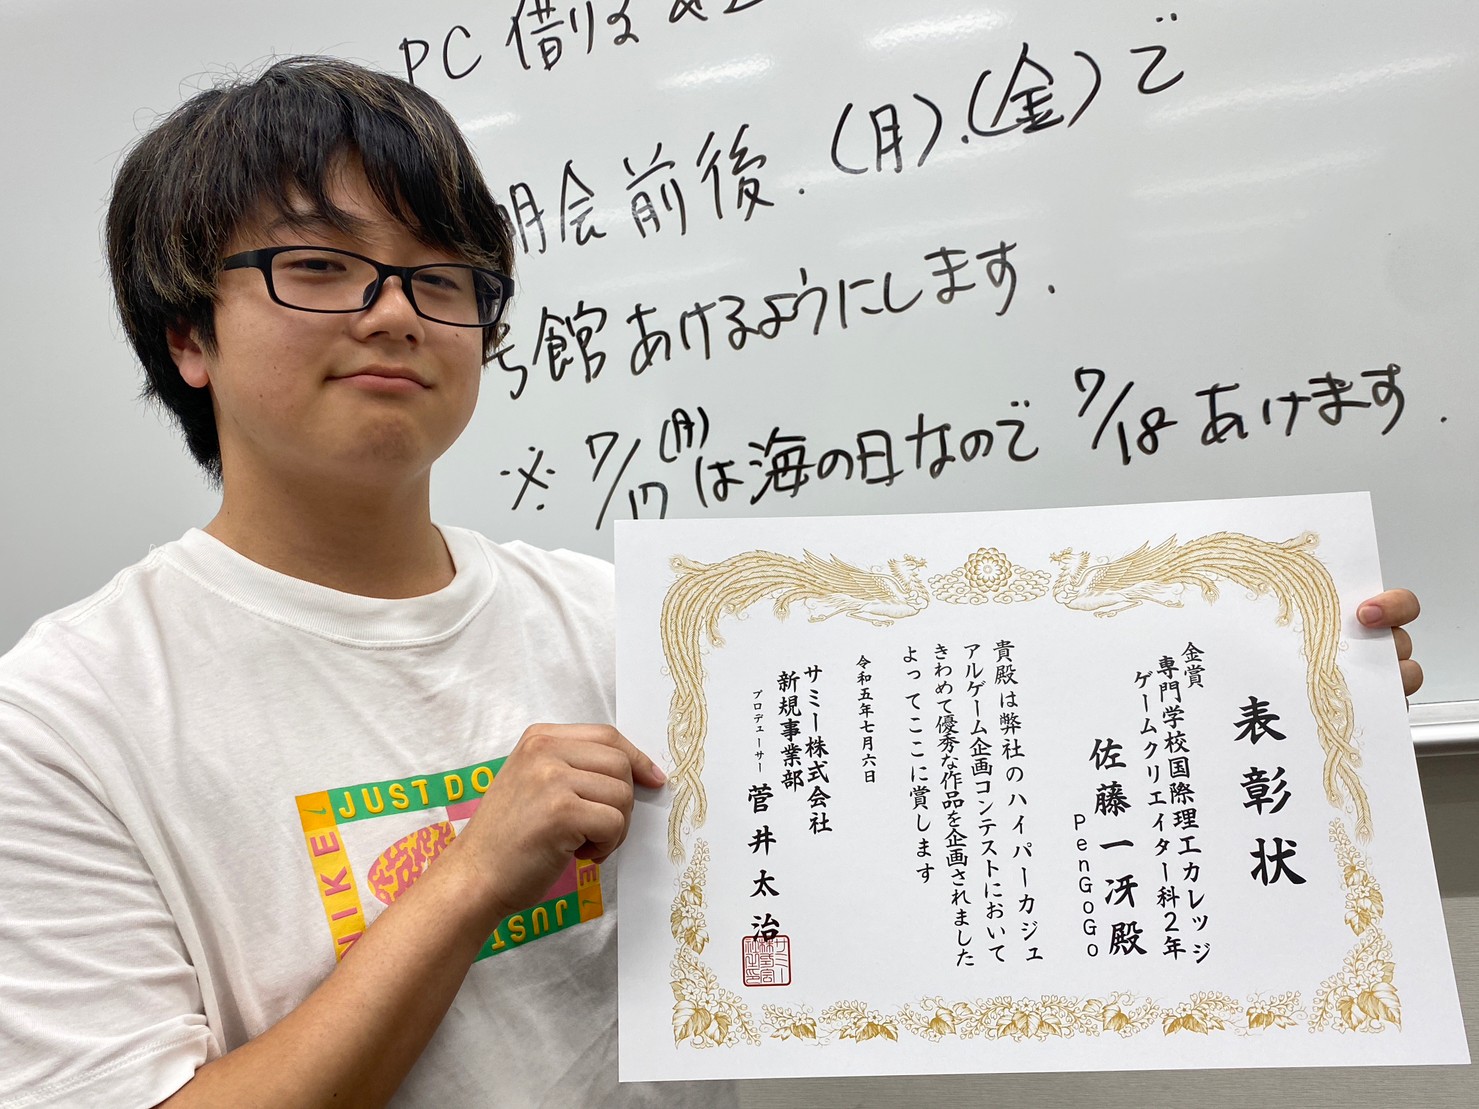 PC 借りる
明会前後.(月).(金)で
号館あけるようにします.
※ 7/17(月)は海の日なので 7/18 あけます.
表彰状
金賞
専門学校国際理工カレッジ
ゲームクリエイター科2年
佐藤一冴殿
PenGoGo
貴殿は弊社のハイパーカジュ
アルゲーム企画コンテストにおいて
きわめて優秀な作品を企画されました
よってここに賞します
令和五年七月六日
サミー株式会社
新規事業部
プロデューサー 菅井太治
JUST DO
NIKE
JUST